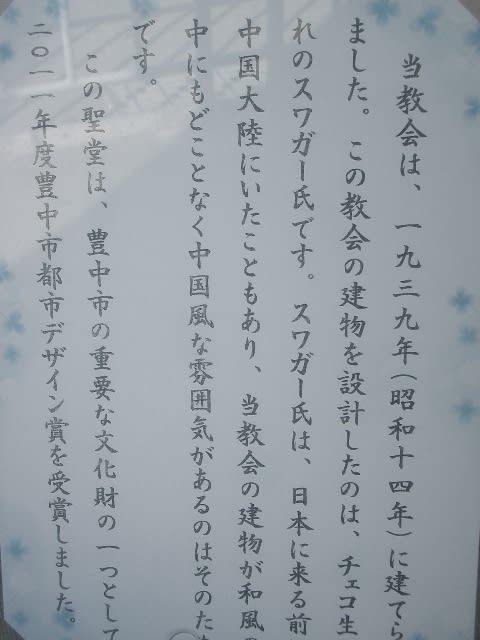 当教会は、一九三九年(昭和十四年)に建てら
ました。この教会の建物を設計したのは、チェコ生
れのスワガー氏です。スワガー氏は、日本に来る前
中国大陸にいたこともあり、当教会の建物が和風の
中にもどことなく中国風な雰囲気があるのはそのた
です。
この聖堂は、豊中市の重要な文化財の一つとして
二〇一一年度豊中市都市デザイン賞を受賞しました。